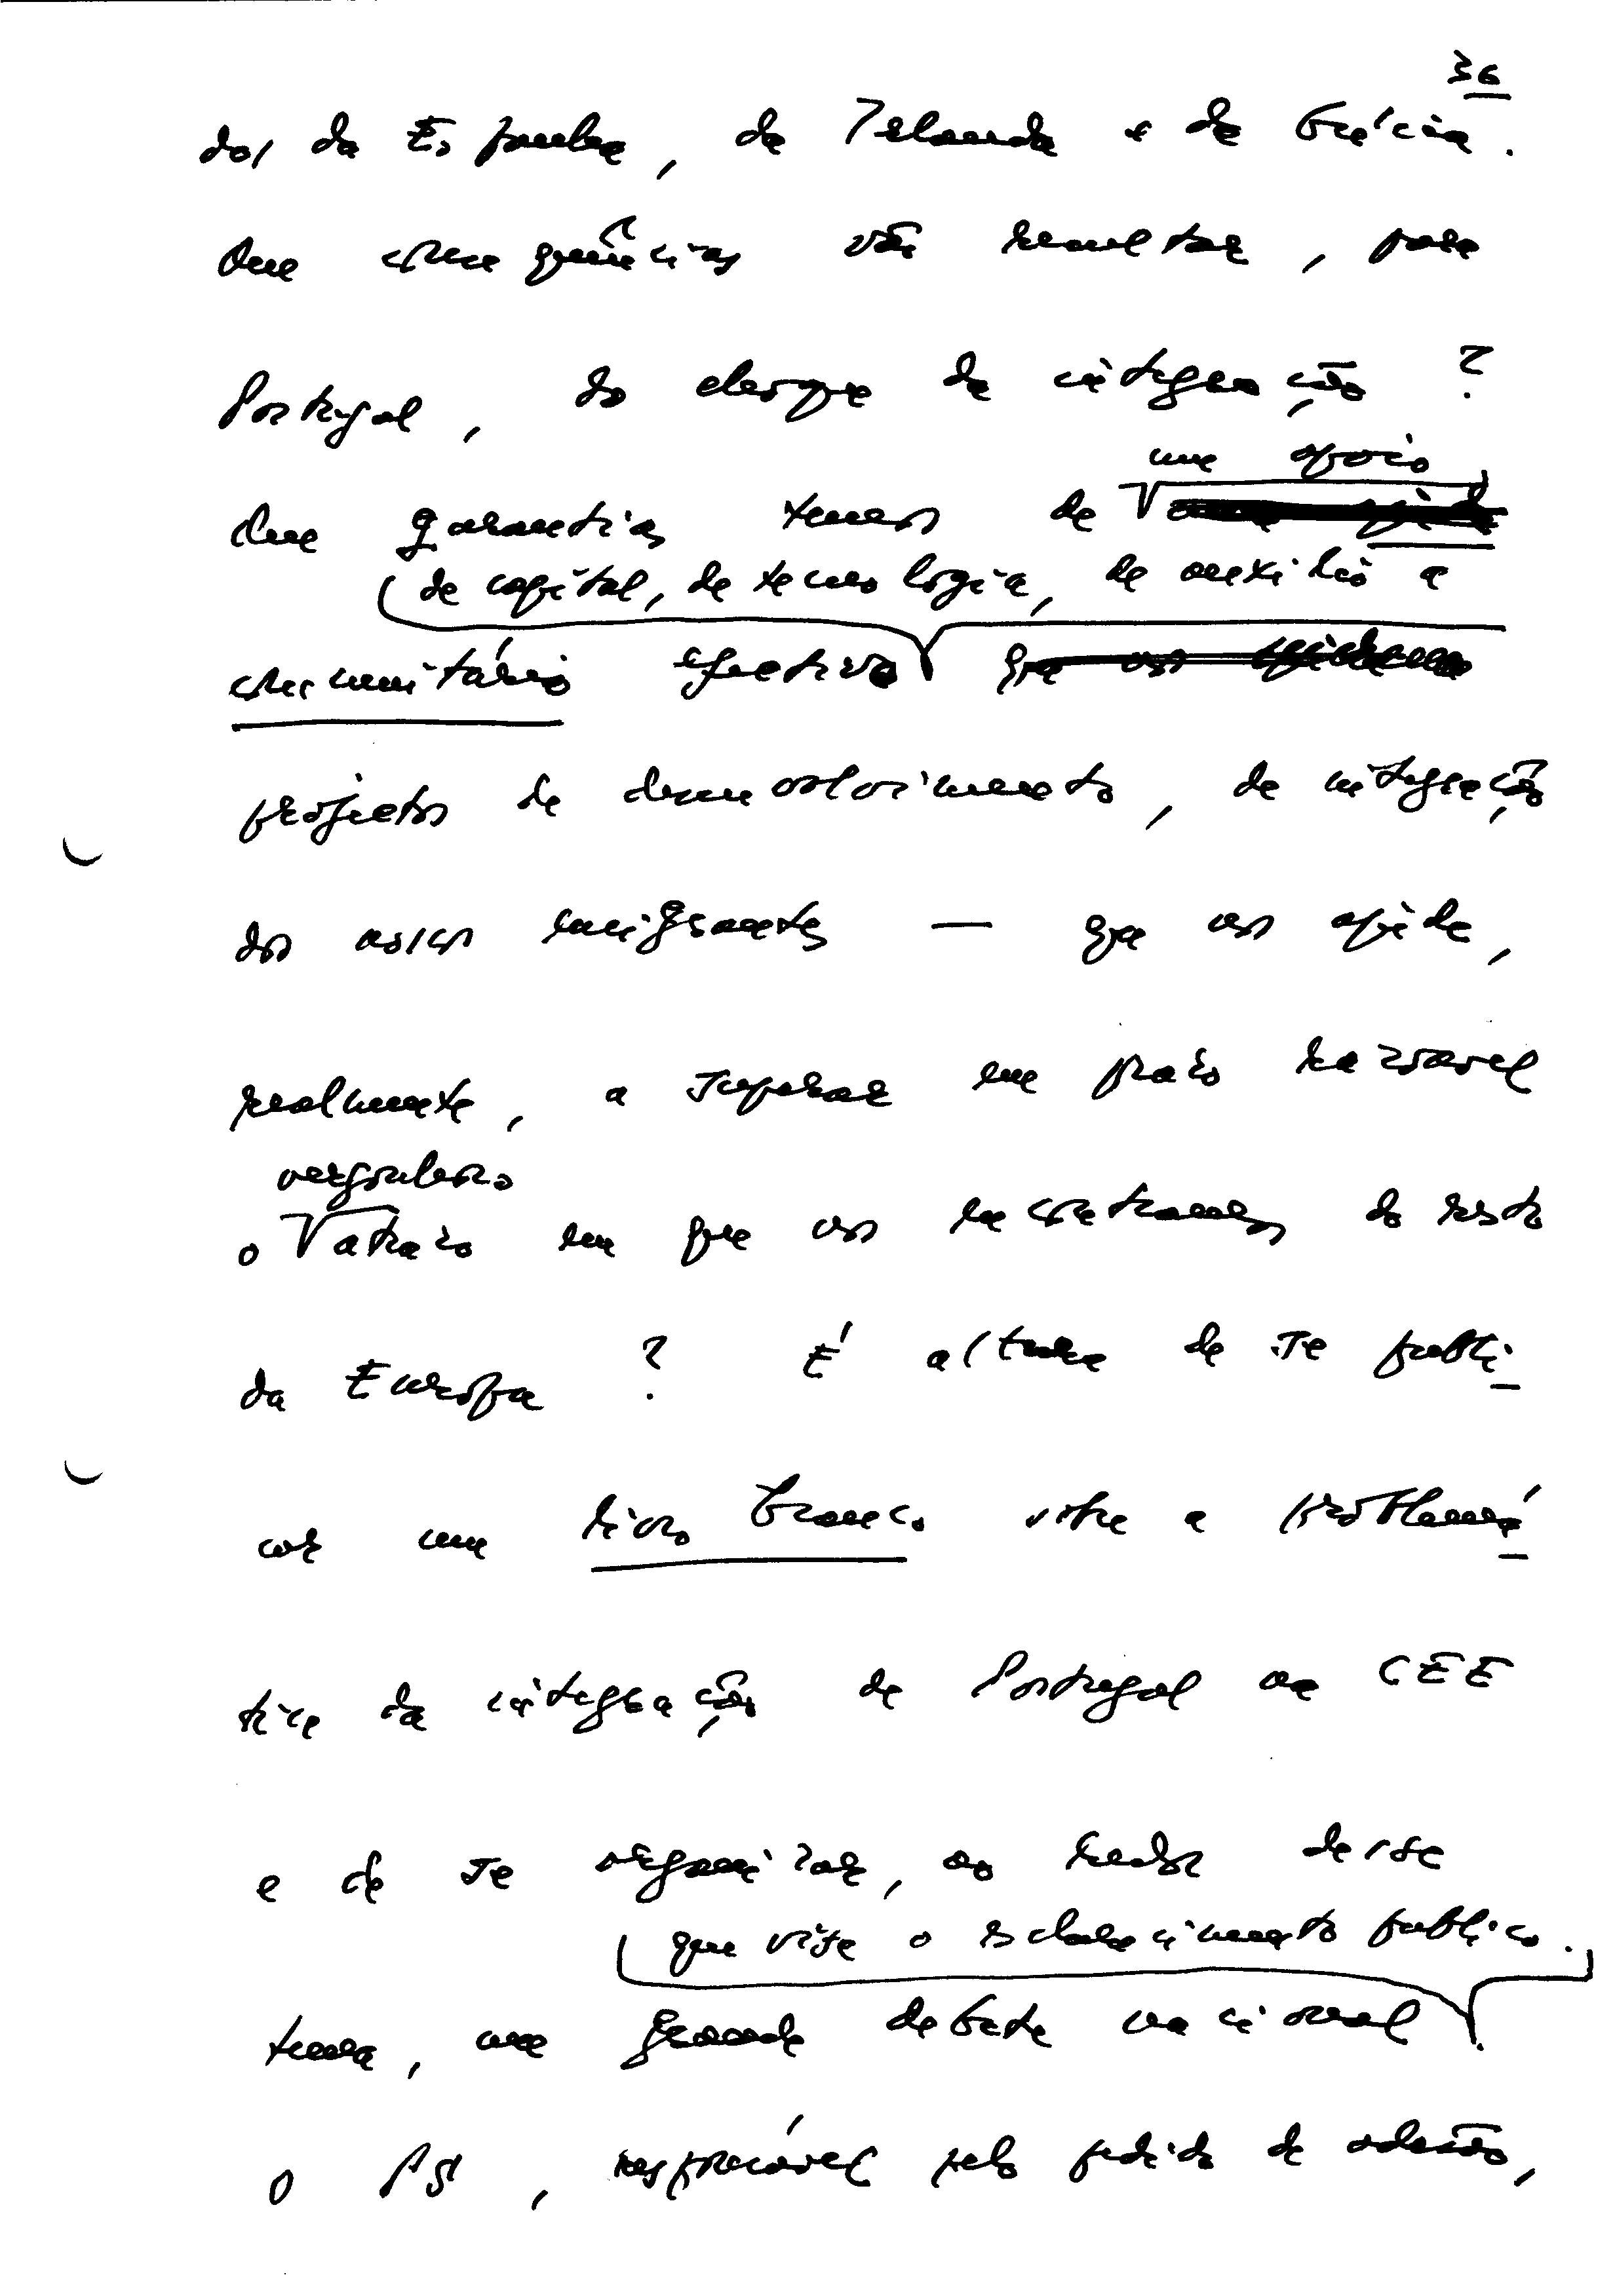 36
dos da Espanha, da Irlanda e da Grécia.
Que consequências vão resultar, para
Portugal, do choque da integração?
um apoio
Que garantias temos de
de capital, de tecnologia, de auxílio a
comunitário efectivo que nos ajudem
projectos de desenvolvimento, de integração
dos nossos emigrantes — que nos ajude,
realmente, a superar em prazo razoável
vergonhoso
o atraso em que nos encontramos do resto
da Europa? É altura de se publi-
car um livro branco sobre a problemá-
tica da integração de Portugal na CEE
e de se organizar, ao redor desse
que vise o esclarecimento público.
tema, um grande debate nacional
o PS, responsável pelo pedido de adesão,